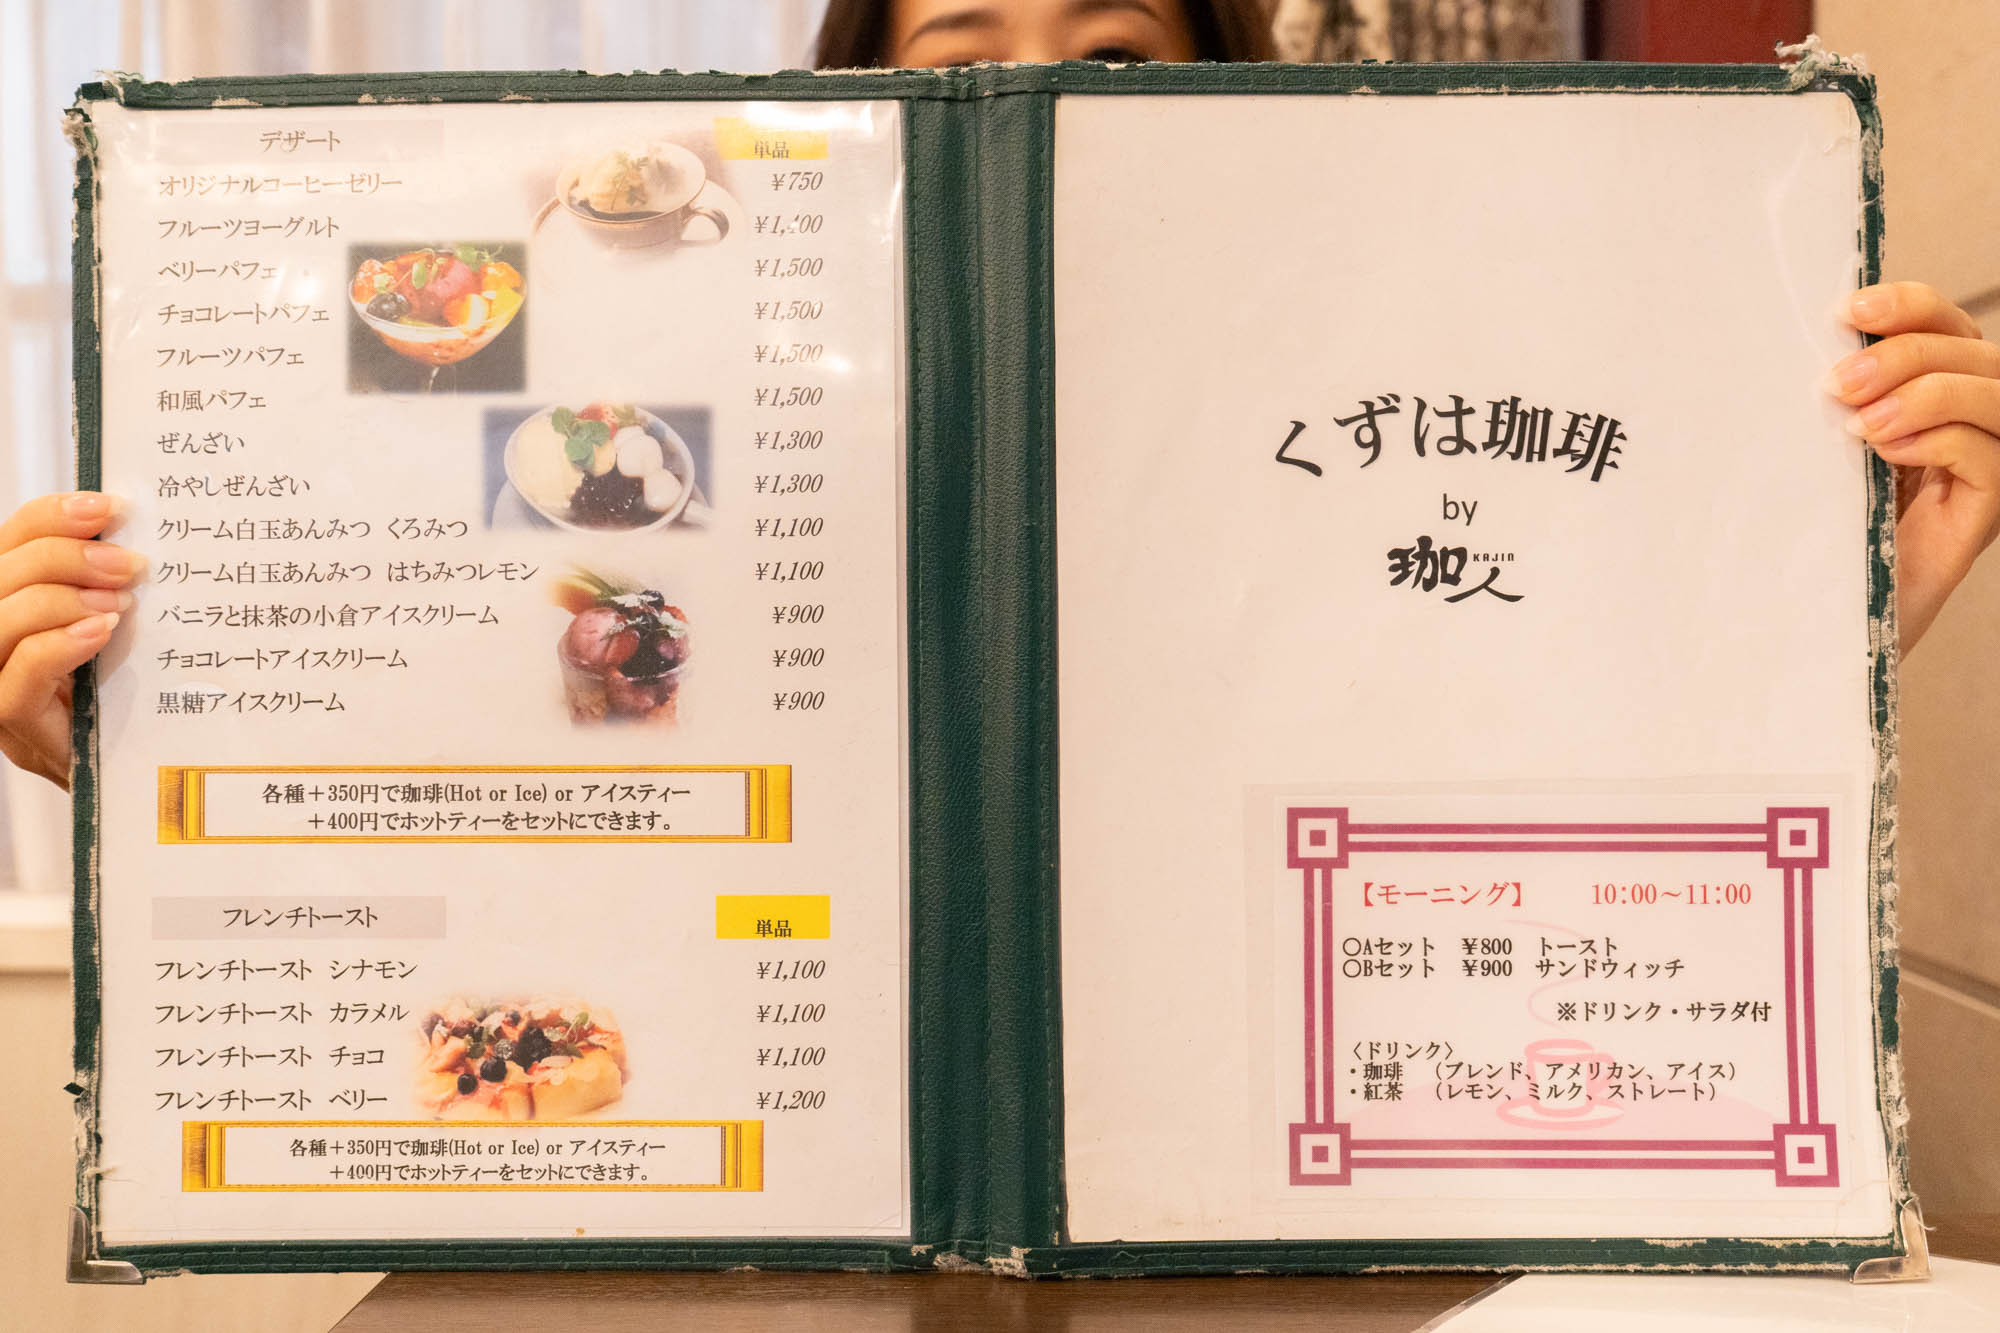 デザート 単品
オリジナルコーヒーゼリー ¥750
フルーツヨーグルト ¥1,400
ベリーパフェ ¥1,500
チョコレートパフェ ¥1,500
フルーツパフェ ¥1,500
和風パフェ ¥1,500
ぜんざい ¥1,300
冷やしぜんざい ¥1,300
クリーム白玉あんみつ くろみつ ¥1,100
クリーム白玉あんみつ はちみつレモン ¥1,100
バニラと抹茶の小倉アイスクリーム ¥900
チョコレートアイスクリーム ¥900
黒糖アイスクリーム ¥900
各種+350円で珈琲(Hot or Ice) or アイスティー
+400円でホットティーをセットにできます。
フレンチトースト 単品
フレンチトースト シナモン ¥1,100
フレンチトースト カラメル ¥1,100
フレンチトースト チョコ ¥1,100
フレンチトースト ベリー ¥1,200
各種+350円で珈琲(Hot or Ice) or アイスティー
+400円でホットティーをセットにできます。
くずは珈琲
by
珈人 KAJIN
【モーニング】 10:00～11:00
○Aセット ¥800 トースト
○Bセット ¥900 サンドウィッチ
※ドリンク・サラダ付
〈ドリンク〉
・珈琲 （ブレンド、アメリカン、アイス）
・紅茶 （レモン、ミルク、ストレート）